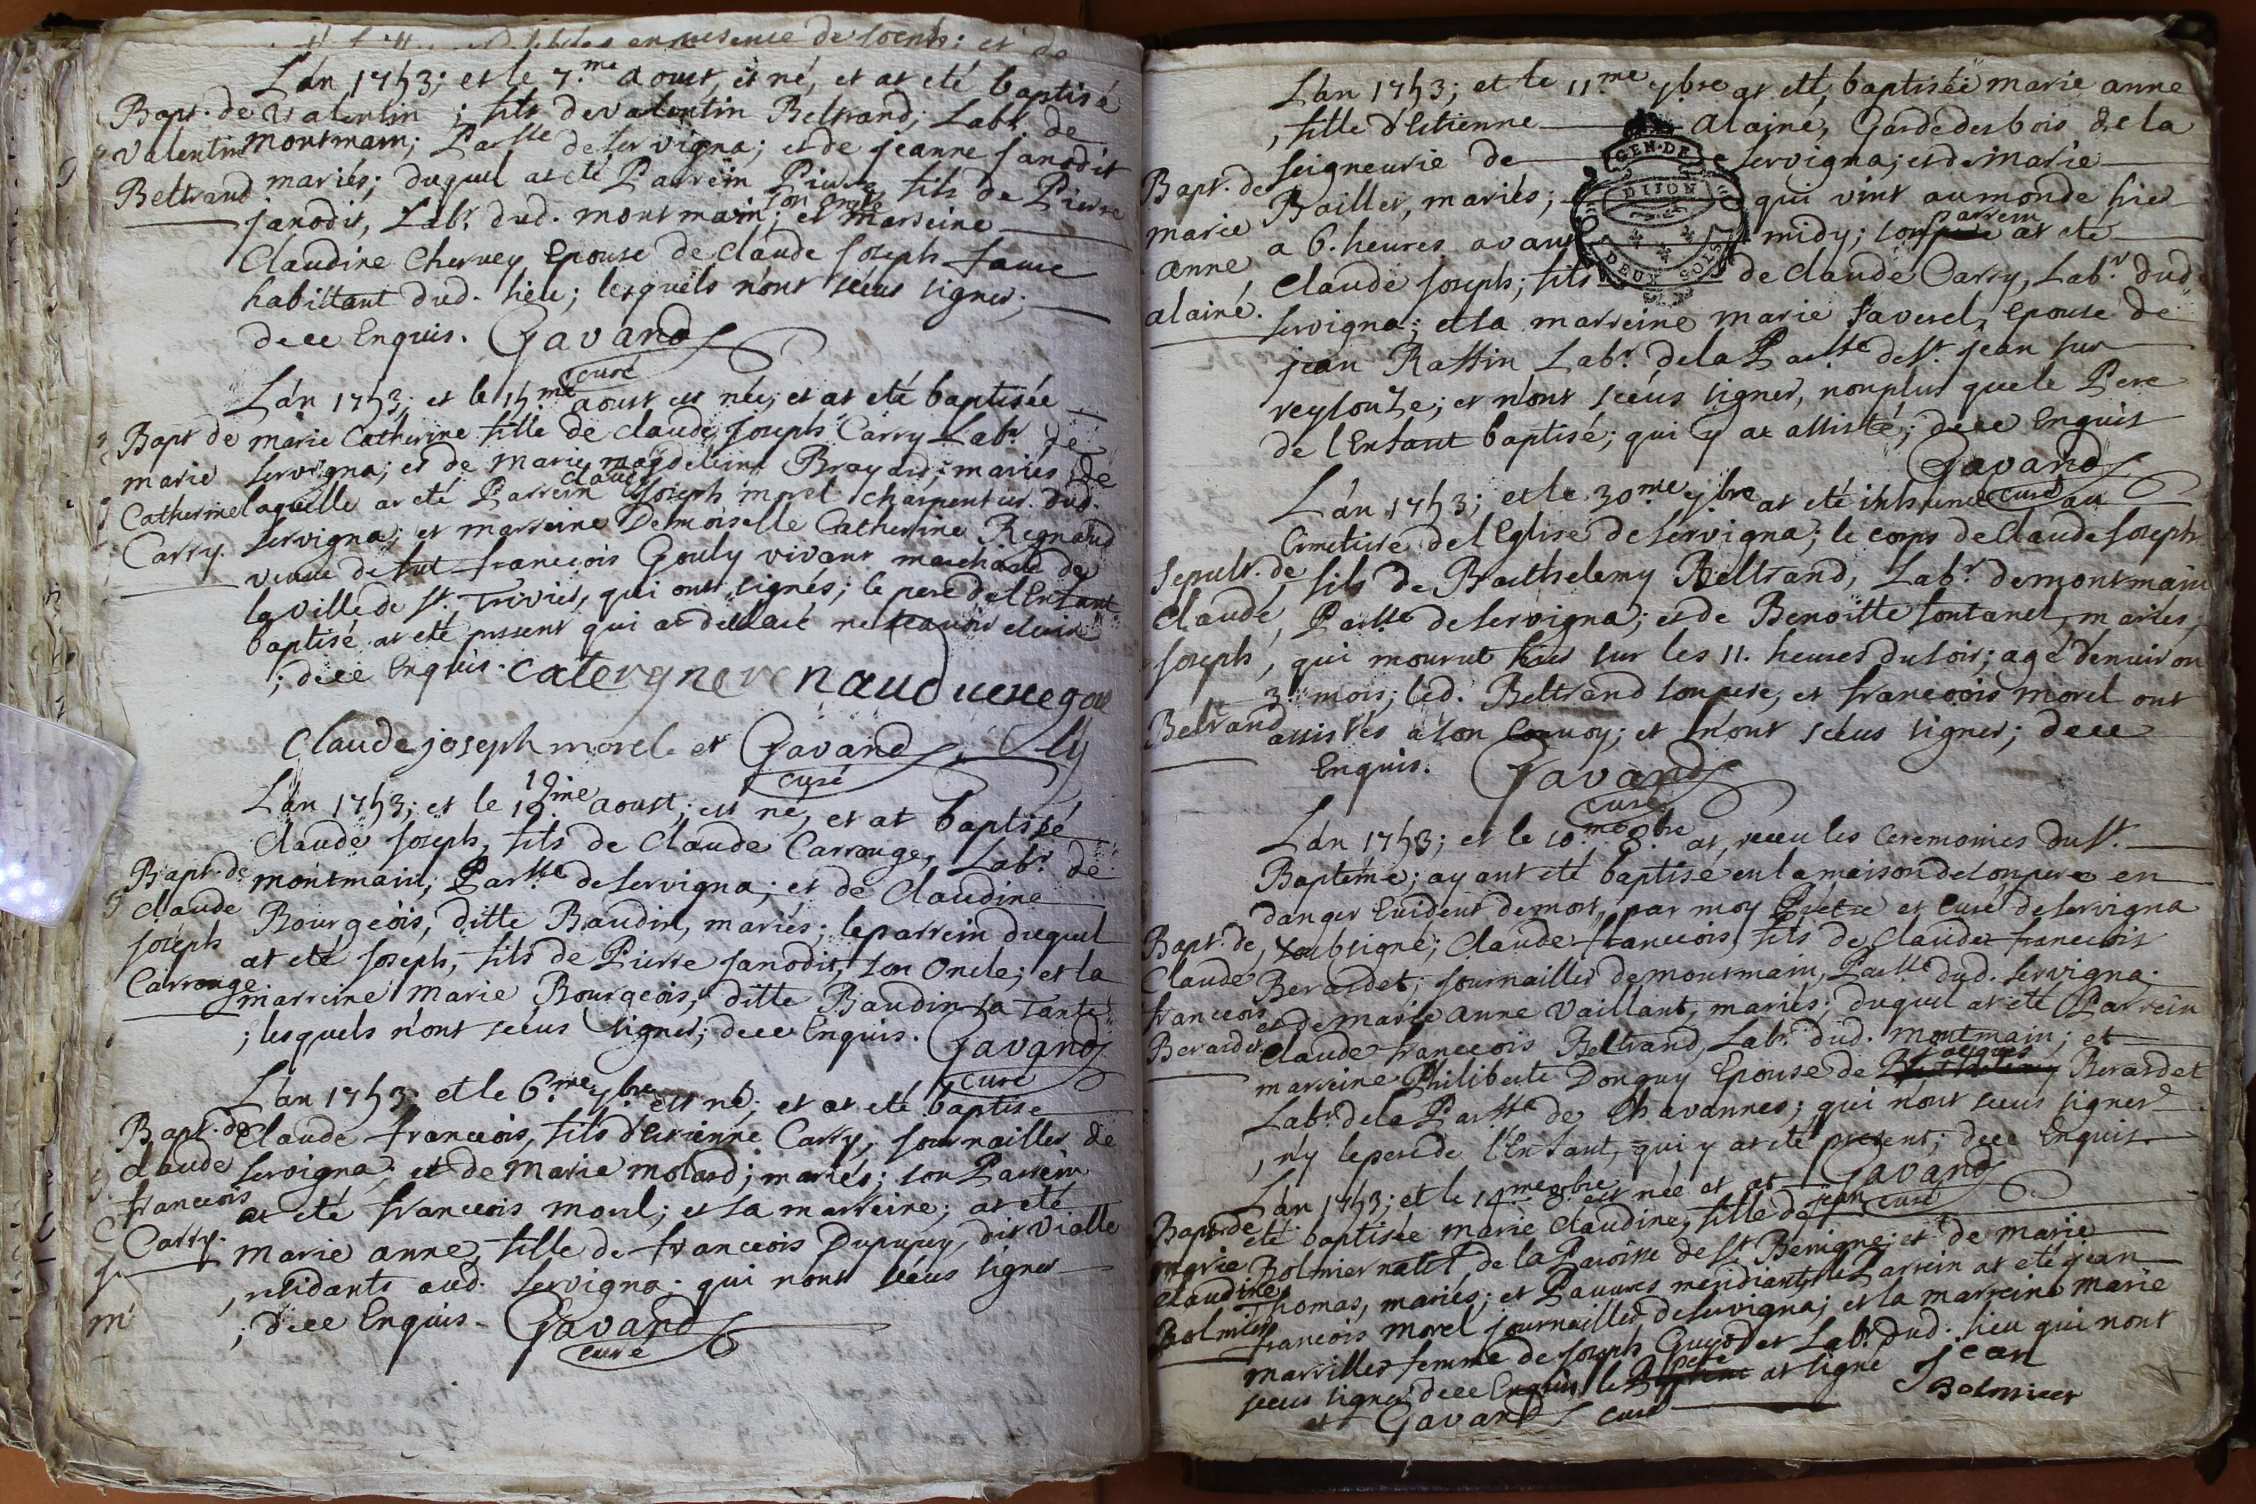 en presence de
L'an 1753; et le 7.me aoust, est né, et at eté baptisé
Bapt. de Valentin ; fils de valentin Beltrand; Labr. de
valentin montmain; Parsse de servigna; et de jeanne janodit
Beltrand mariés; duquel at eté Parrein Pierre, fils de Pierre
son oncle
janodit, Labr. dud. montmain; et marreine
Claudine Chervey Epouse de claude joseph
habittant dud. lieu; lesquels n'ont sceus signer;
de ce Enquis. Gavand
curé
L'an 1753; et le 15.me aoust est née, et at eté baptisée
Bapt de marie Catherine fille de claude joseph Carry Labr. de
marie servigna; et de Marie magdeleine Brayard; mariés; de
Catherine laquelle at eté Parrein claude joseph morel charpentier dud.
Carry. servigna; et marreine Demoiselle Catherine Regnaud
veuve de fut francois Gouly vivant marchand de
la ville de st. Trivier, qui ont signés; le pere de l'Enfant
baptisé at eté present qui at declaré ne scavoir ecrire
; de ce Enquis. catergne renaud veuve gou
ly
Claude joseph morel et Gavand
curé
L'an 1753; et le 19me aoust; est né, et at baptisé
Claude joseph, fils de Claude Carronge, Labr. de
Bapt. de montmain; Parsse de servigna; et de Claudine
claude Bourgeois, ditte Baudin, mariés; le parrein duquel
joseph at eté joseph, fils de Pierre janodit, son Oncle; et la
Carronge marreine Marie Bourgeois, ditte Baudin sa Tante
; lesquels n'ont sceus signer; de ce Enquis. Gavand
curé
L'an 1753; et le 6.me 7bre est né; et at eté baptisé
Bapt. de Claude francois, fils d'Estienne Carry, journailler de
claude servigna; et de Marie molard; mariés; son Parrein
francois at eté francois morel; et sa marreine; at eté
Carry. Marie anne, fille de francois Dupupuy, dit Vialle
, residants aud. servigna; qui n'ont sceus signer
; de ce Enquis. Gavand
curé
L'an 1753; et le 11.me 7bre at eté baptisée marie anne
, fille d'Estienne alainé, Garde des bois de la
seigneurie de servigna; et de Marie
GEN. DE
DIJON
DEUX SOLS
Bapt. de Bailler, mariés; qui vint au monde hier
marie a 6. heures avant midy; son parrein at eté
anne, claude joseph; fils de claude Carry, Labr. dud.
alainé. servigna; et sa marreine marie Faverel, epouse de
jean Raffin Labr. de la Parsse de st. jean sur
reysouze; et n'ont sceus signer, non plus que le Pere
de l'Enfant baptisé; qui y at assisté; de ce Enquis
Gavand
curé
L'an 1753; et le 30.me 7bre at eté inhumé au
Cimetiere de l'Eglise de servigna; le corps de Claude joseph
Sepult. de, fils de Barthelemy Beltrand, Labr. de montmain
claude, Parsse de servigna; et de Benoitte fontanel, mariés;
joseph, qui mourut hier sur les 11. heures du soir; agé d'environ
3. mois; led. Beltrand son pere, et francois morel ont
Beltrand assistés à son Convoy; et n'ont sceus signer; de ce
Enquis. Gavand
curé
L'an 1753; et le 10.me 8.bre at, receu les Ceremonies du st.
Baptême; ayant eté baptisé en la maison de son pere en
danger Evident de mort, par moy Prêtre et Curé de servigna
Bapt. de, soubsigné; Claude francois, fils de Claude francois
Claude Berardet; journailler de montmain, Parsse dud. servigna
francois et de marie anne Vaillant, mariés; duquel at eté Parrein
Berardet Claude francois Beltrand, Labr. dud. montmain; et
marreine Philiberte Donguy Epouse de jacques Berardet
Labr. de la Parsse de Chavannes; qui n'ont sceus signer
, n'y le pere de l'Enfant, qui y at eté present; de ce Enquis.
Gavand
curé
L'an 1753; et le 14.me 8.bre est née et at
Bapt. de eté baptisée marie Claudine, fille de jean
marie Bolmier natif de la Paroisse de st Benigne; et de marie
claudine Thomas, mariés; et Pauvres mendiants; le Parrein at eté jean
Bolmier francois morel journailler de servigna; et la marreine marie
marviller femme de joseph Guyodet Labr. dud. lieu qui n'ont
sceus signer de ce Enquis le pere at signé jean
Bolmier
et Gavand curé